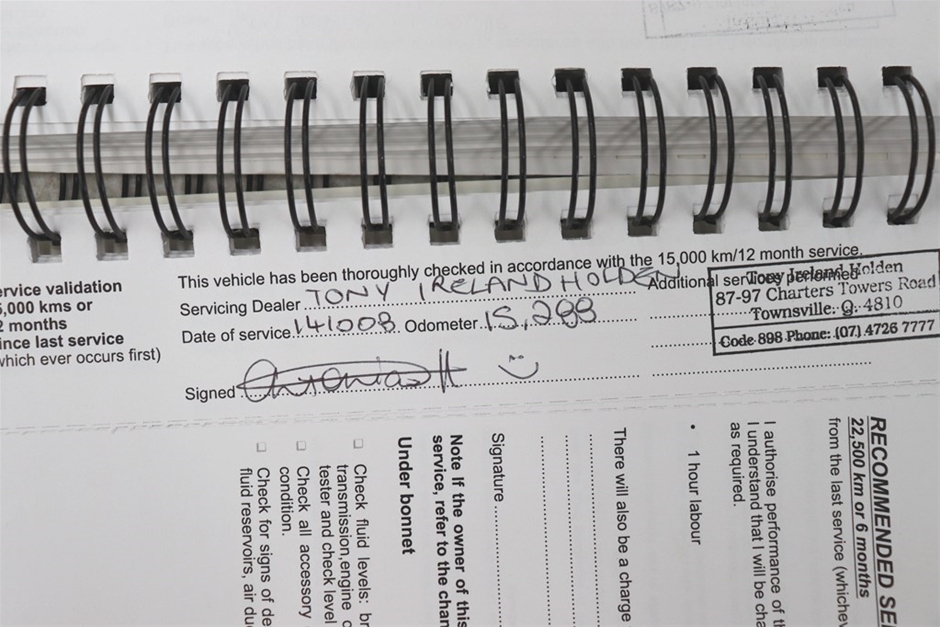 This vehicle has been thoroughly checked in accordance with the 15,000 km/12 month service.
rvice validation
,000 kms or
2 months
ince last service
which ever occurs first)
Servicing Dealer TONY IRELAND HOLDEN Additional services performed
Date of service 141008 Odometer 15,288
Signed
Tony Ireland Holden
87-97 Charters Towers Road
Townsville. Q. 4810
Code 898 Phone: (07) 4726 7777
RECOMMENDED SE
22,500 km or 6 months
from the last service (whichev
I authorise performance of th
I understand that I will be cha
as required.
• 1 hour labour
There will also be a charge
Signature
Note If the owner of this
service, refer to the chan
Under bonnet
□ Check fluid levels: br
transmission,engine c
tester and check level
□ Check all accessory
condition.
□ Check for signs of de
fluid reservoirs, air du